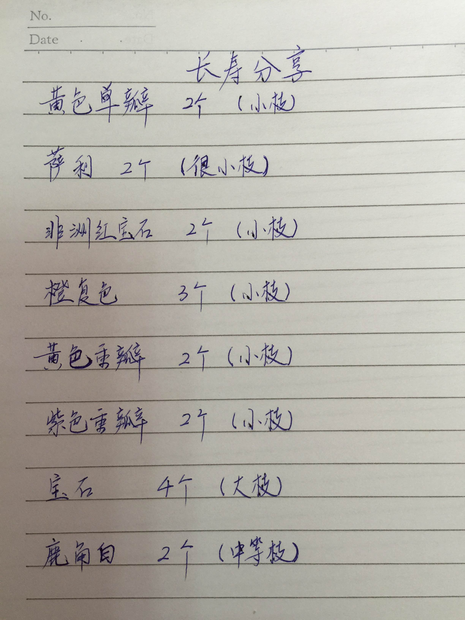 No.
Date
长寿分享
黄色单瓣 2个 (小枝)
萨利 2个 (很小枝)
非洲红宝石 2个 (小枝)
橙复色 3个 (小枝)
黄色重瓣 2个 (小枝)
紫色重瓣 2个 (小枝)
宝石 4个 (大枝)
鹿角自 2个 (中等枝)